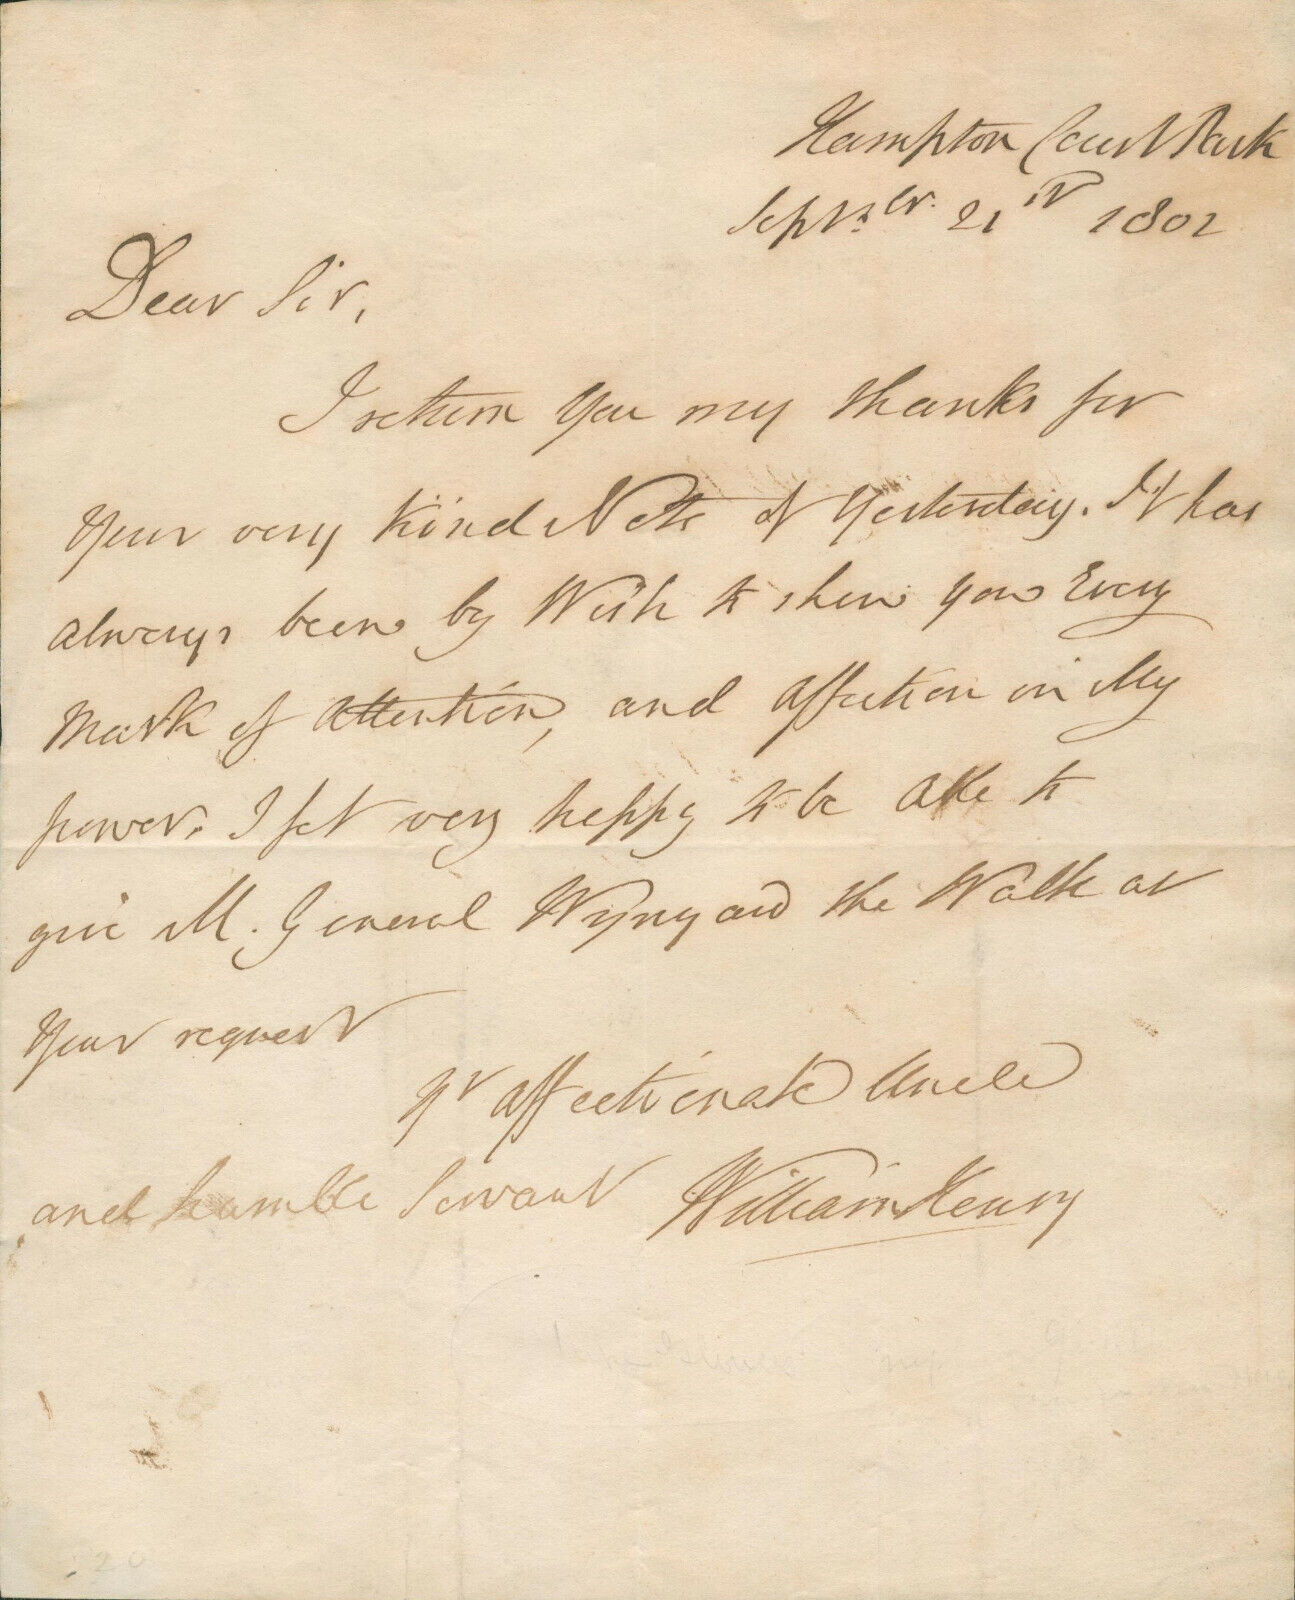 Hampton Court Park
Septr. 21st 1802
Dear Sir,
I return you my thanks for
your very kind Note of Yesterday. It has
always been by Wish to shew you Every
Mark of attention, and affection in My
power. I felt very happy to be able to
give M. General Wynyard the Walk at
your request
Yr affectionate Uncle
and humble Servant William Henry
20